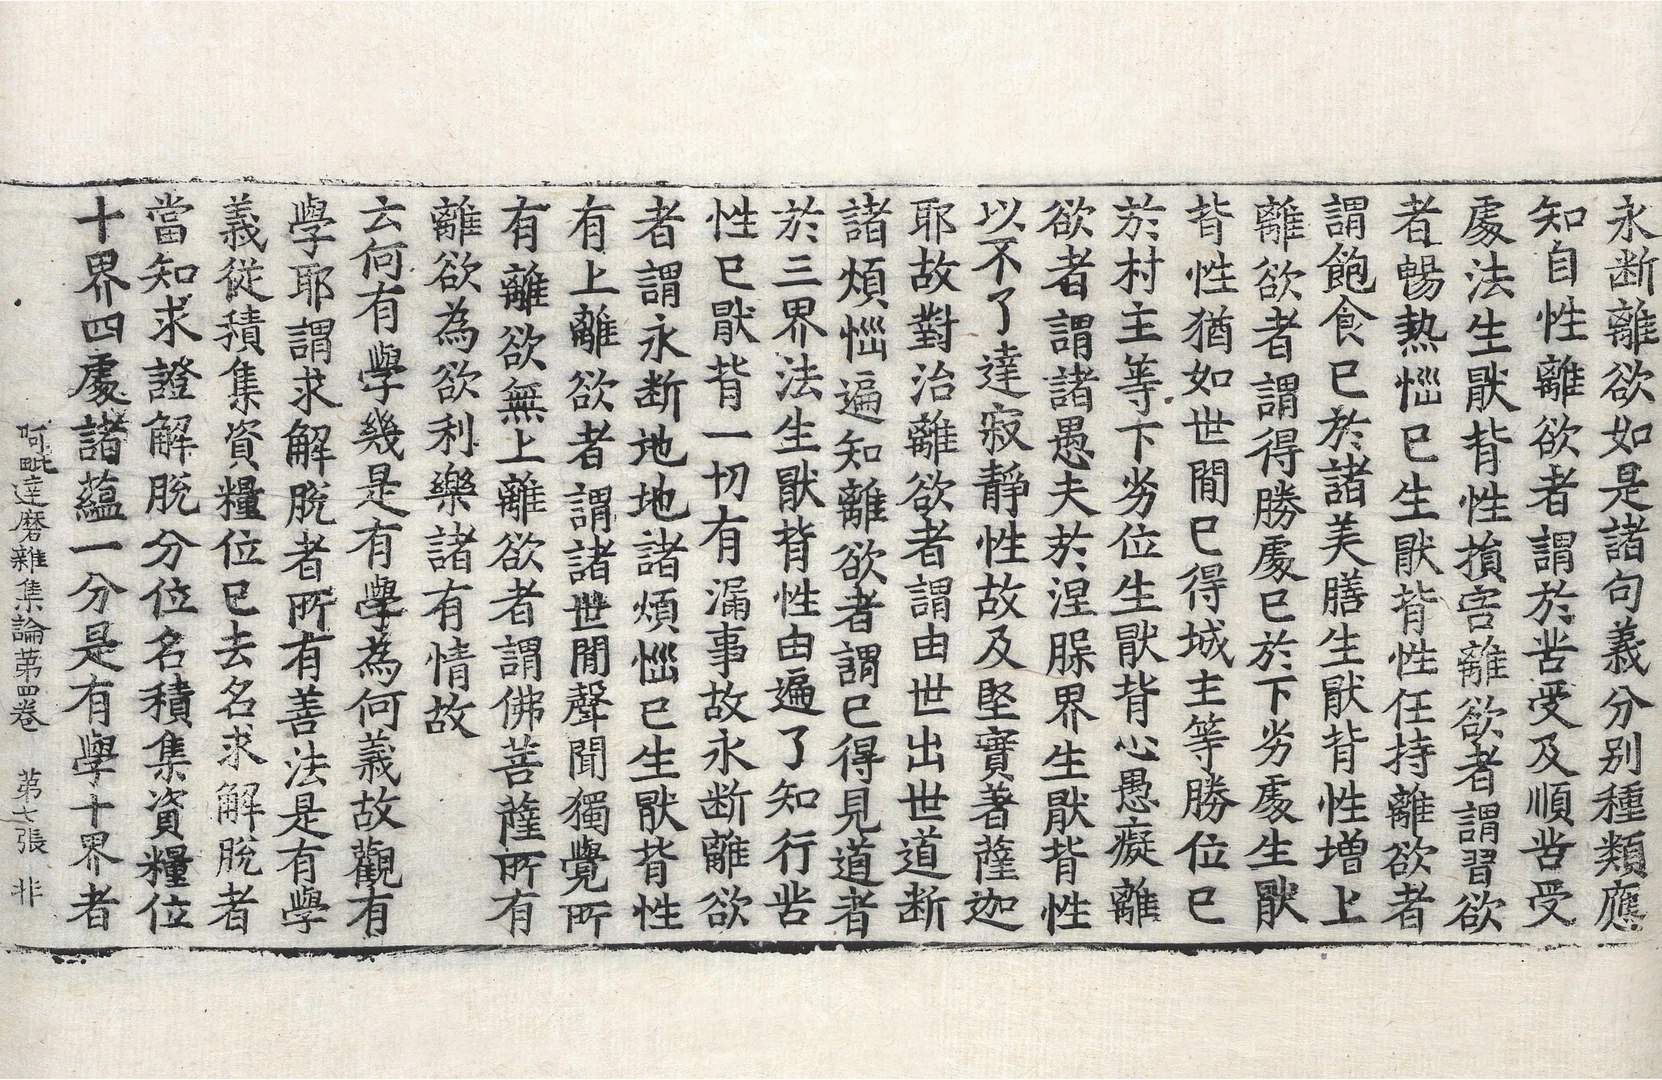 永断離欲如是諸句義分别種類應
知自性離欲者謂於苦受及順苦受
處法生猒背性損害離欲者謂習欲
者暢熱惱已生猒背性任持離欲者
謂飽食已於諸美膳生猒背性增上
離欲者謂得勝處已於下劣處生猒
背性猶如世間已得城主等勝位已
於村主等下劣位生猒背心愚癡離
欲者謂諸愚夫於涅槃界生猒背性
以不了達寂靜性故及堅實著薩迦
耶故對治離欲者謂由世出世道断
諸煩惱遍知離欲者謂已得見道者
於三界法生猒背性由遍了知行苦
性已猒背一切有漏事故永断離欲
者謂永断地地諸煩惱已生猒背性
有上離欲者謂諸世間聲聞獨覺所
有離欲無上離欲者謂佛菩薩所有
離欲為欲利樂諸有情故
云何有學幾是有學為何義故觀有
學耶謂求解脫者所有善法是有學
義從積集資糧位已去名求解脫者
當知求證解脫分位名積集資糧位
十界四處諸蘊一分是有學十界者
阿毗達磨雜集論第四卷 第七張 非